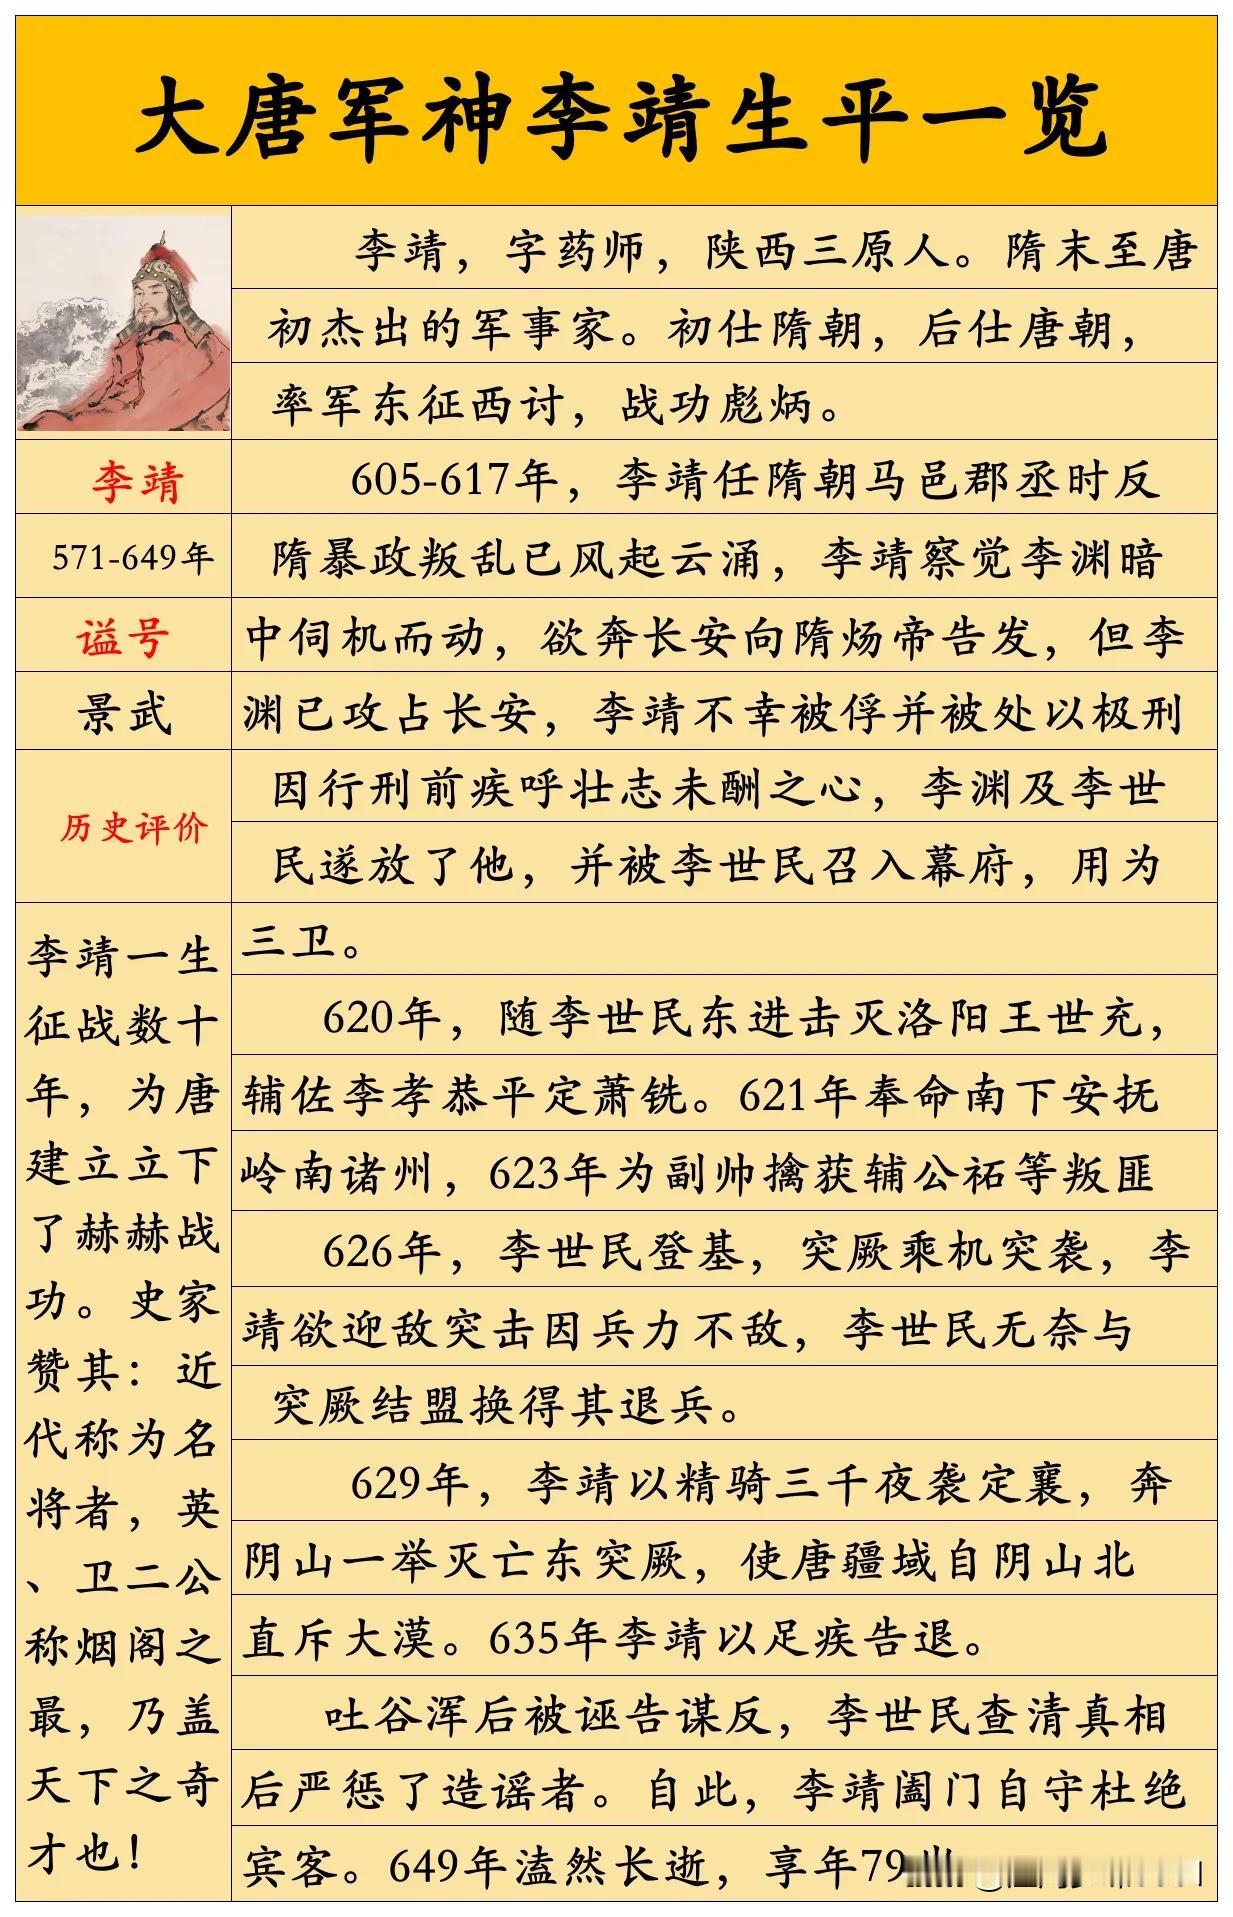 大唐军神李靖生平一览
李靖，字药师，陕西三原人。隋末至唐
初杰出的军事家。初仕隋朝，后仕唐朝，
率军东征西讨，战功彪炳。
李靖
605-617年，李靖任隋朝马邑郡丞时反
571-649年
隋暴政叛乱已风起云涌，李靖察觉李渊暗
谥号
中伺机而动，欲奔长安向隋炀帝告发，但李
景武
渊已攻占长安，李靖不幸被俘并被处以极刑
历史评价
因行刑前疾呼壮志未酬之心，李渊及李世
民遂放了他，并被李世民召入幕府，用为
三卫。
620年，随李世民东进击灭洛阳王世充，
辅佐李孝恭平定萧铣。621年奉命南下安抚
岭南诸州，623年为副帅擒获辅公祏等叛匪
626年，李世民登基，突厥乘机突袭，李
靖欲迎敌突击因兵力不敌，李世民无奈与
突厥结盟换得其退兵。
629年，李靖以精骑三千夜袭定襄，奔
阴山一举灭亡东突厥，使唐疆域自阴山北
直斥大漠。635年李靖以足疾告退。
吐谷浑后被诬告谋反，李世民查清真相
后严惩了造谣者。自此，李靖阖门自守杜绝
宾客。649年溘然长逝，享年79
李靖一生
征战数十
年，为唐
建立立下
了赫赫战
功。史家
赞其：近
代称为名
将者，英
、卫二公
称烟阁之
最，乃盖
天下之奇
才也！